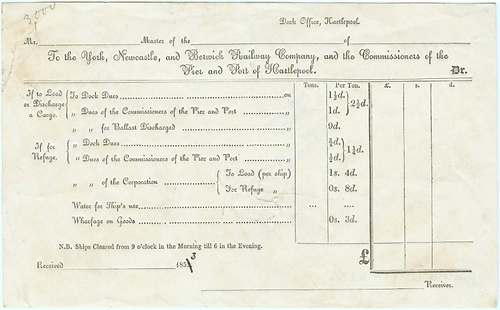 3,000
Dock Office, Hartlepool.
Mr. Master of the of
To the York, Newcastle, and Berwick Railway Company, and the Commissioners of the
Pier and Port of Hartlepool. Dr.
Tons. Per Ton. £. s. d.
If to Load or Discharge a Cargo. { To Dock Dues on 1½d. } 2½d.
„ Dues of the Commissioners of the Pier and Port „ 1d.
„ „ for Ballast Discharged „ 9d.
If for Refuge. { „ Dock Dues „ ¾d. } 1¼d.
„ Dues of the Commissioners of the Pier and Port „ ½d.
„ „ of the Corporation { To Load (per ship) 1s. 4d.
For Refuge „ 0s. 8d.
Water for Ship's use ... ....
Wharfage on Goods 0s. 3d.
N.B. Ships Cleared from 9 o'clock in the Morning till 6 in the Evening.
£
Received 185 3
Receiver.